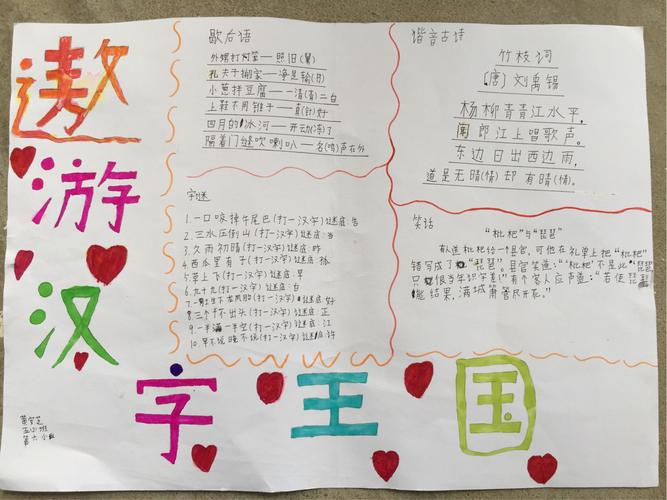 遨
游
汉
字 王 国
歇后语
外甥打灯笼——照旧(舅)
孔夫子搬家——净是输(书)
小葱拌豆腐——一清(青)二白
上鞋不用锥子——真(针)好
四月的冰河——开动(冻)了
隔着门缝吹喇叭——名(鸣)声在外
谐音古诗
竹枝词
(唐)刘禹锡
杨柳青青江水平,
闻郎江上唱歌声。
东边日出西边雨,
道是无晴(情)却有晴(情)。
字谜
1.一口咬掉牛尾巴(打一汉字)谜底:告
2.三水压倒山(打一汉字)谜底:当
3.久雨初晴(打一汉字)谜底:昨
4.西瓜里有子(打一汉字)谜底:孤
5.草上飞(打一汉字)谜底:早
6.九十九(打一汉字)谜底:白
(打一汉字)谜底:好
8.三个千不出头(打一汉字)谜底:正
9.一半满一半空(打一汉字)谜底:江
10.早不说晚不说(打一汉字)谜底:许
笑话
“枇杷”与“琵琶”
有人送枇杷给一个县官,可他在礼单上把“枇杷”
错写成了“琵琶”。县官笑道:“‘枇杷’不是此‘琵琶’
只恨当年识字差!”有个客人应声道:“若使琵琶
能结果,满城箫管尽开花。”
第六小组